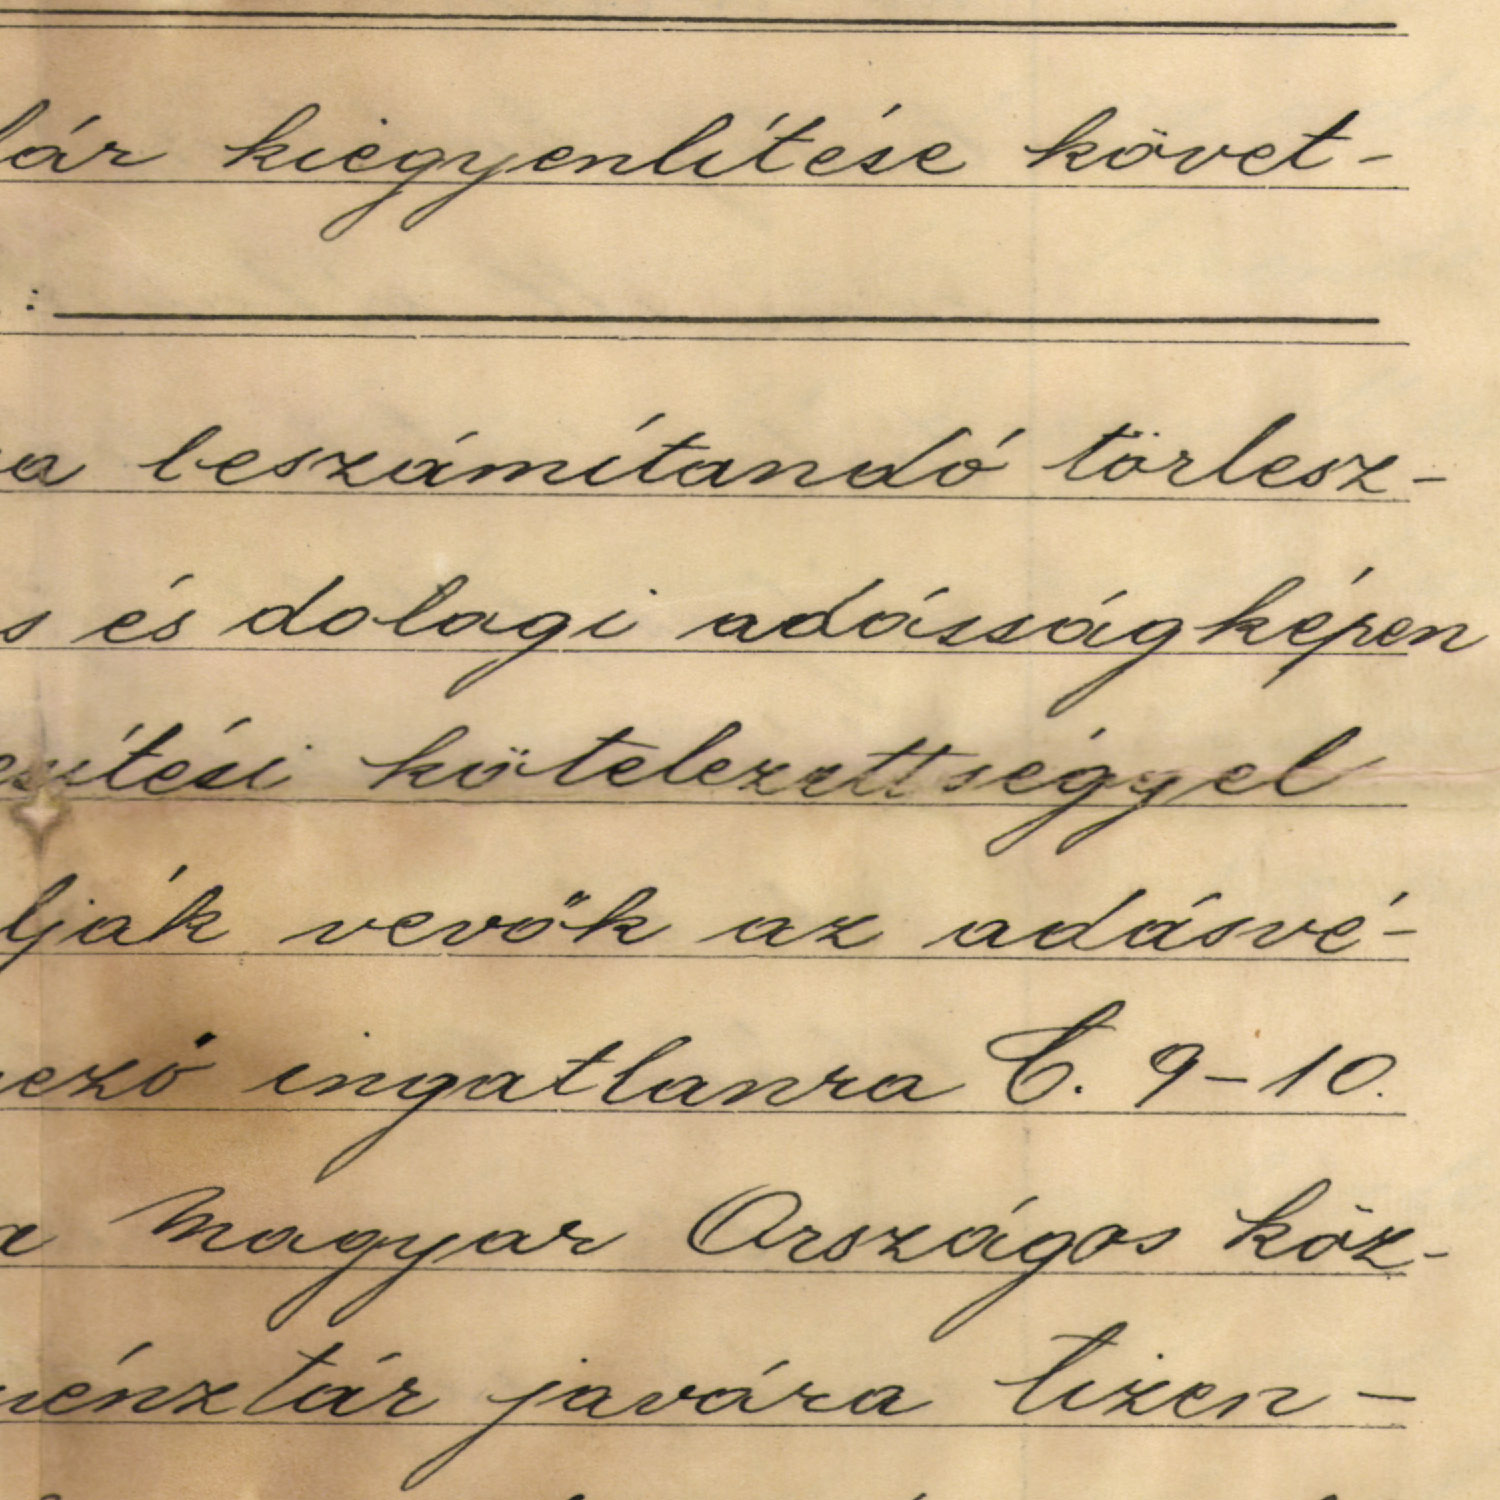 lár kiegyenlítése követ-
:
a beszámítandó törlesz-
s és dologi adósságképen
esítési kötelezettséggel
lják vevők az adásvé-
ező ingatlanra C. 9-10.
a Magyar Országos köz-
pénztár javára tizen-